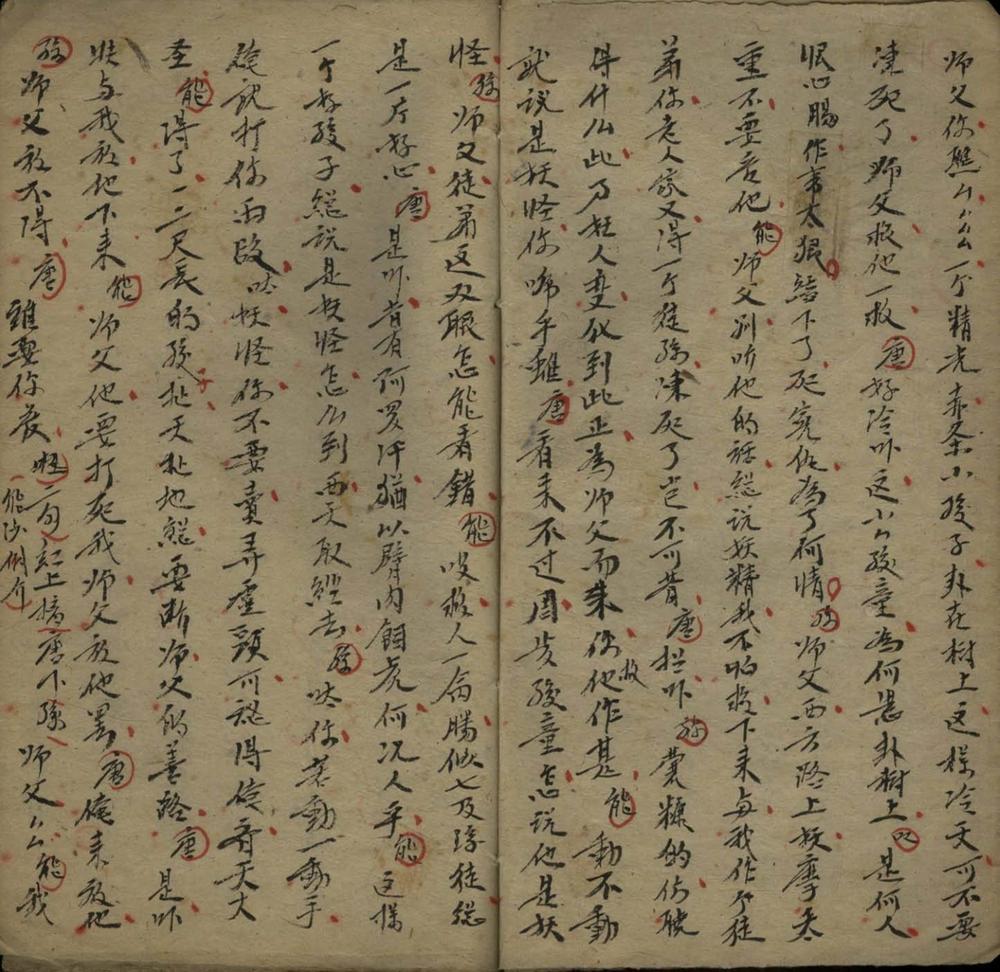 师父你照厶厶厶一个精光赤条小孩子卦在树上这样冷天可不要
凍死了师父救他一救唐好冷吓这小厶孩童為何悬卦樹上又是何人
恨心腸作事太狠結下了冤仇為了何情孫师父西方路上妖摩太
重不要管他能师父別听他的話総說妖精我不怕放下来与我作个徒
弟你老人家又得一个徒孫凍死了岂不可昔唐拦吓孫糞糠的你
得什么此乃妖人变化到此正為师父而来你救他作甚能動不動
就說是妖怪你唐看来不过周岁孩童怎說他是妖
怪孫师父徒弟这双眼怎能看錯能哎救人一命勝似七及徒総
是一片好心唐是吓昔有阿罗汗猶以臂肉飼虎何況人乎能这様
一个好孩子総說是妖怪怎么到西天取經去孫呔你若動一動手
俺就打你両段呔妖怪你不要賣弄虛頭可認得俺齐天大
圣能得了一二尺長的孩子扯天扯地総要断师父的善路唐是吓
快与我放他下来能师父他要打死我师父放他罢唐俺来放他
孫师父放不得唐誰要你管一句紅上擋唐下孫师父厶厶能我
能沙